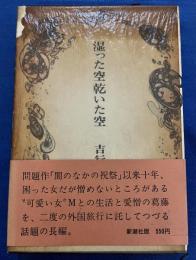 湿った空乾いた空
吉行
問題作「闇のなかの祝祭」以来十年、
困った女だが憎めないところがある
“可愛い女”Mとの生活と愛憎の葛藤
を、二度の外国旅行に託してつづる
話題の長編。
新潮社版 550円